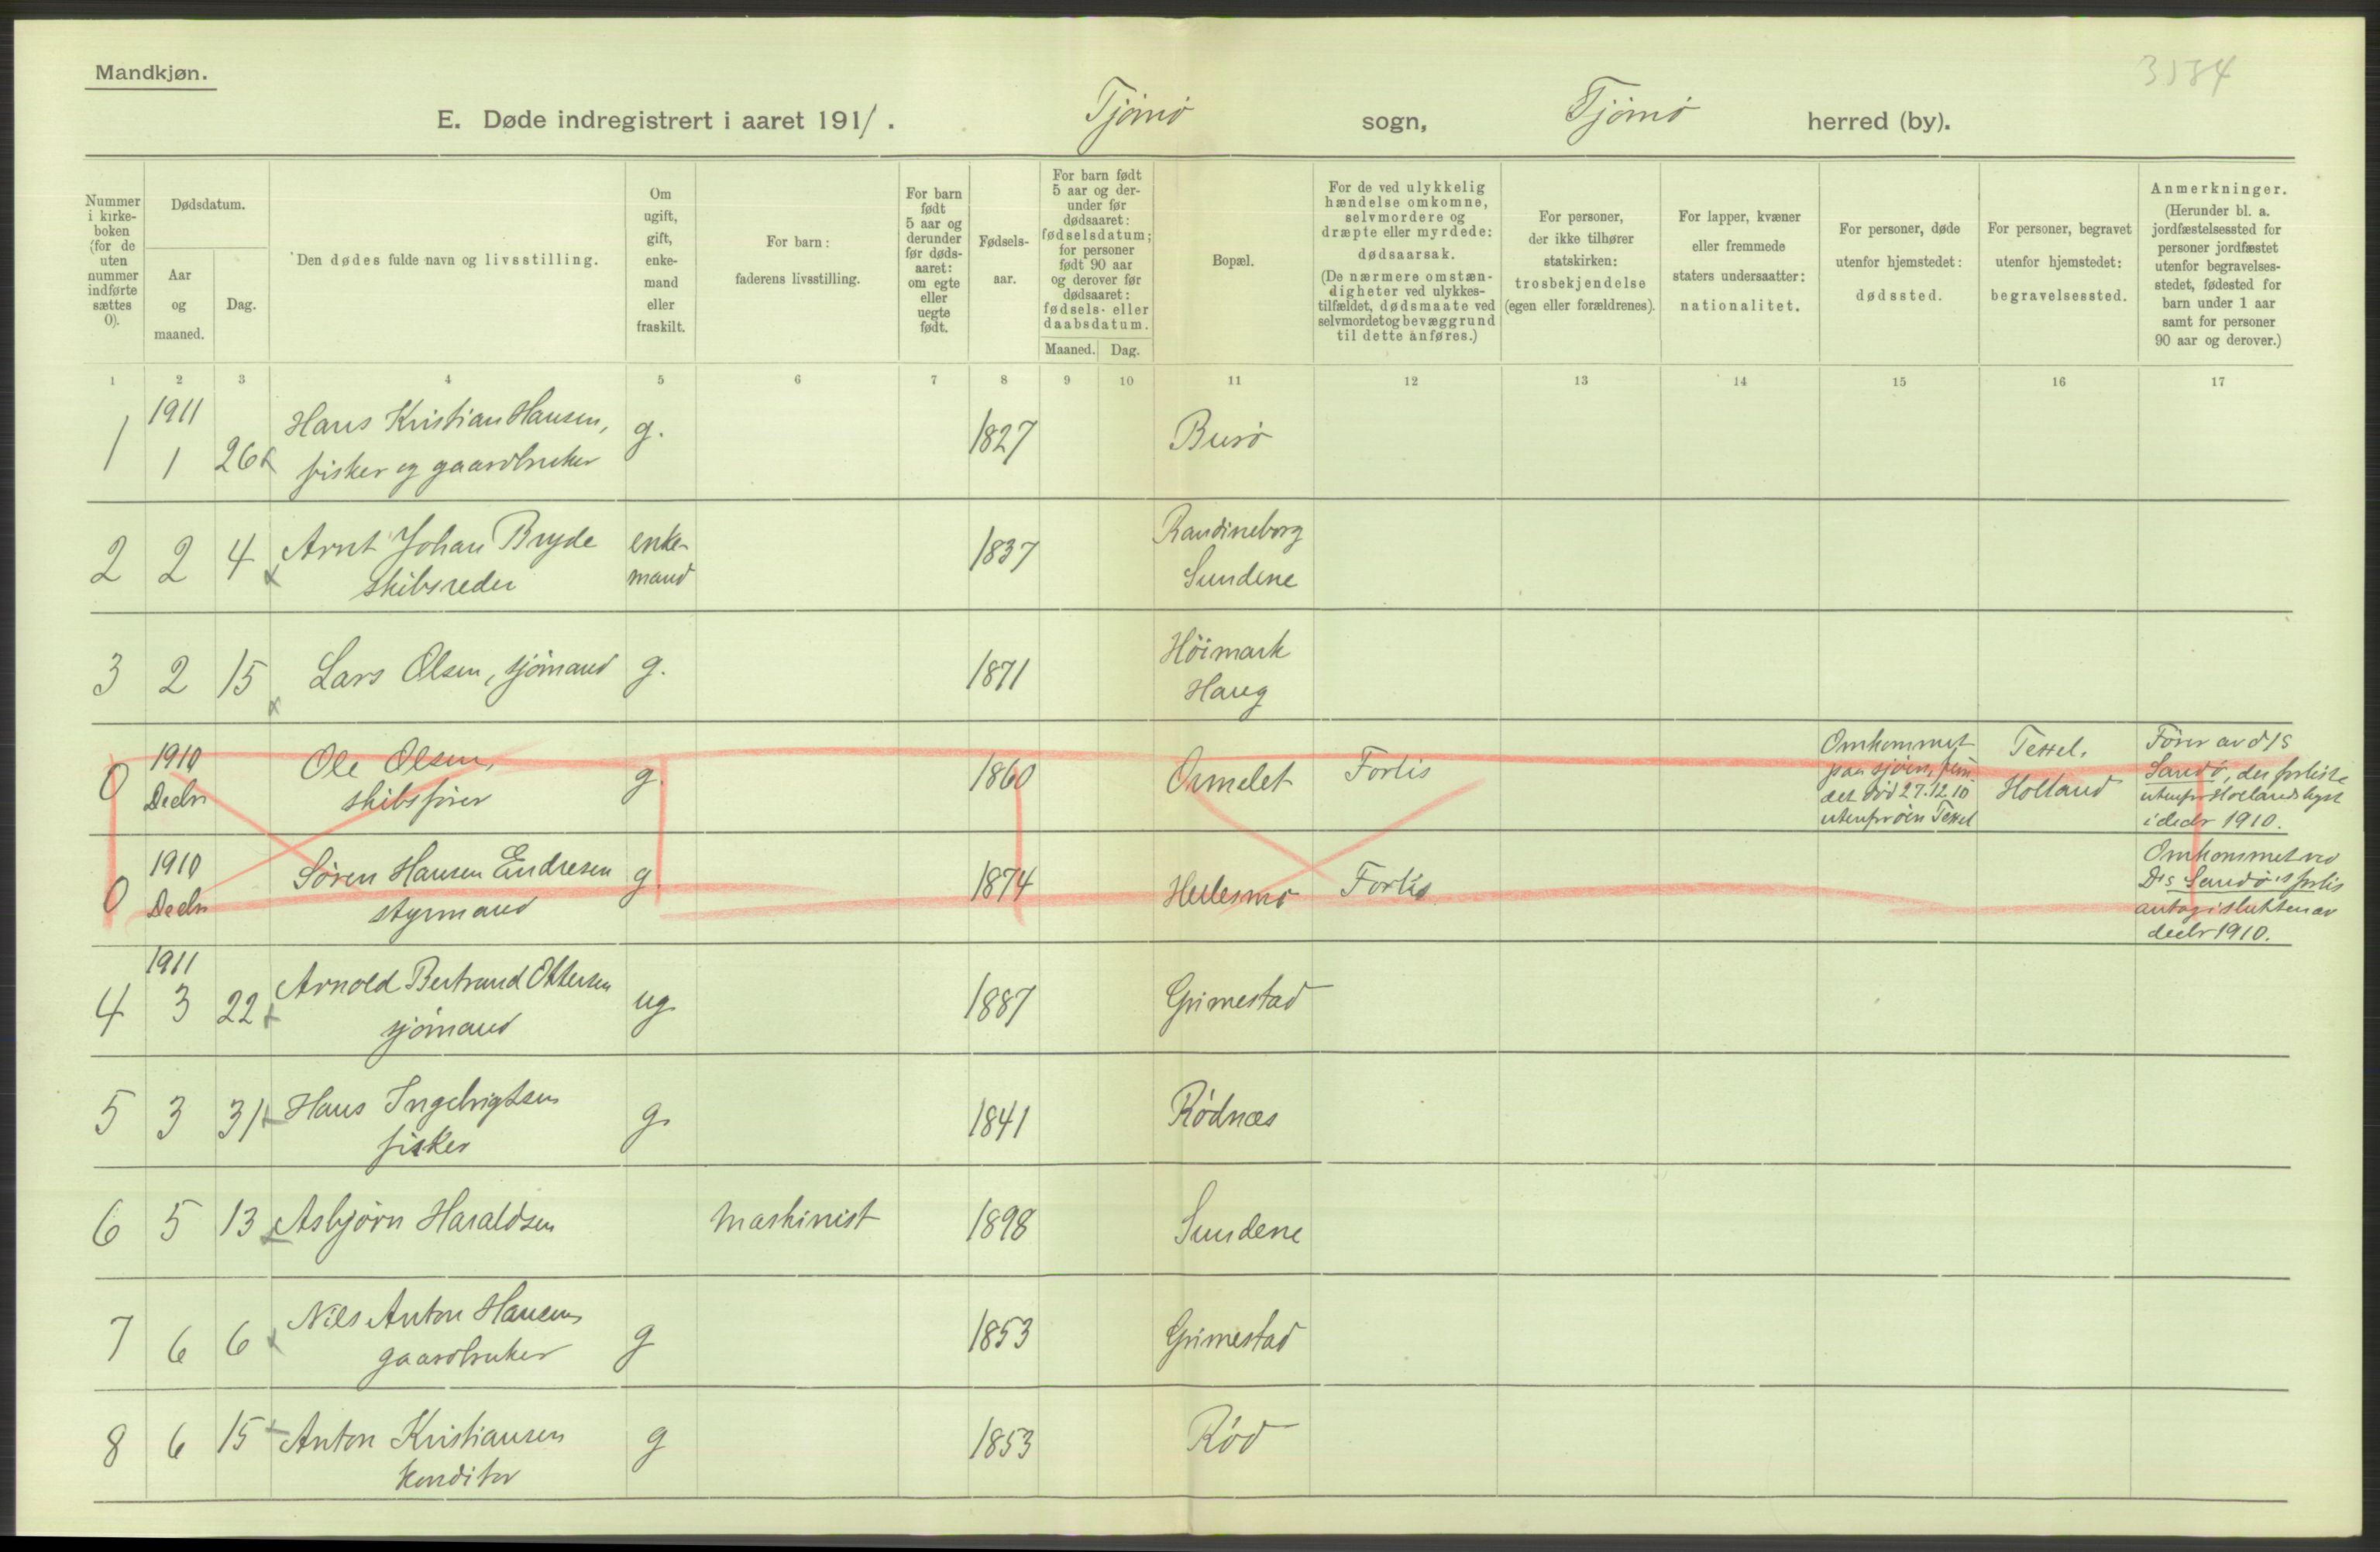 Mandkjøn.
3584
E. Døde indregistrert i aaret 1911. Tjömö sogn, Tjömö herred (by).
Nummer i kirke-boken (for de uten nummer indførte sættes 0).
Dødsdatum.
Aar og maaned.
Dag.
Den dødes fulde navn og livsstilling.
Om ugift, gift, enke-mand eller fraskilt.
For barn: faderens livsstilling.
For barn født 5 aar og derunder før døds-aaret: om egte eller uegte født.
Fødsels-aar.
For barn født 5 aar og der-under før dødsaaret: fødselsdatum; for personer født 90 aar og derover før dødsaaret: fødsels- eller daabsdatum.
Maaned. Dag.
Bopæl.
For de ved ulykkelig hændelse omkomne, selvmordere og dræpte eller myrdede: dødsaarsak. (De nærmere omstæn-digheter ved ulykkes-tilfældet, dødsmaate ved selvmordet og bevæggrund til dette anføres.)
For personer, der ikke tilhører statskirken: trosbekjendelse (egen eller forældrenes).
For lapper, kvæner eller fremmede staters undersaatter: nationalitet.
For personer, døde utenfor hjemstedet: dødssted.
For personer, begravet utenfor hjemstedet: begravelsessted.
Anmerkninger. (Herunder bl. a. jordfæstelsessted for personer jordfæstet utenfor begravelses-stedet, fødested for barn under 1 aar samt for personer 90 aar og derover.)
1 2 3 4 5 6 7 8 9 10 11 12 13 14 15 16 17
1911
1 1 26 Hans Kristian Hansen, g. 1827 Burö
fisker og gaardbruker
2 2 4 Arnt Johan Bryde enke- 1837 Randineborg
skibsreder mand Sundene
3 2 15 Lars Olsen, sjömand g. 1871 Höimark
Haug
0 1910 Decbr Ole Olsen, g. 1860 Ormelet Forlis
skibsfører
Omkommet
paa sjøen, fun-
det död 27.12.10
utenfor öen Texel
Texel,
Holland
Förer av d/s
Sandö, der forliste
utenfor Hollands kyst
i decbr 1910.
0 1910 Decbr Sören Hansen Endresen g. 1874 Hellesmo Forlis
styrmand
Omkommet ved
D/s Sandö's forlis
antag. i slutten av
decbr 1910.
1911
4 3 22 Arnold Bertrand Ottersen ug. 1887 Grimestad
sjömand
5 3 31 Hans Ingebrigtsen g. 1841 Rödnæs
fisker
6 5 13 Asbjörn Haraldsen maskinist 1898 Sundene
7 6 6 Nils Anton Hansen g 1853 Grimestad
gaardbruker
8 6 15 Anton Kristiansen g 1853 Röd
konditor